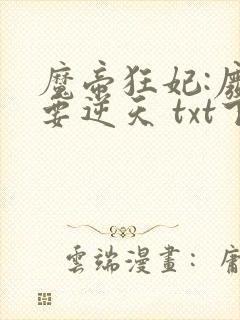 魔帝狂妃:
要逆天 txt下
雲端漫畫：